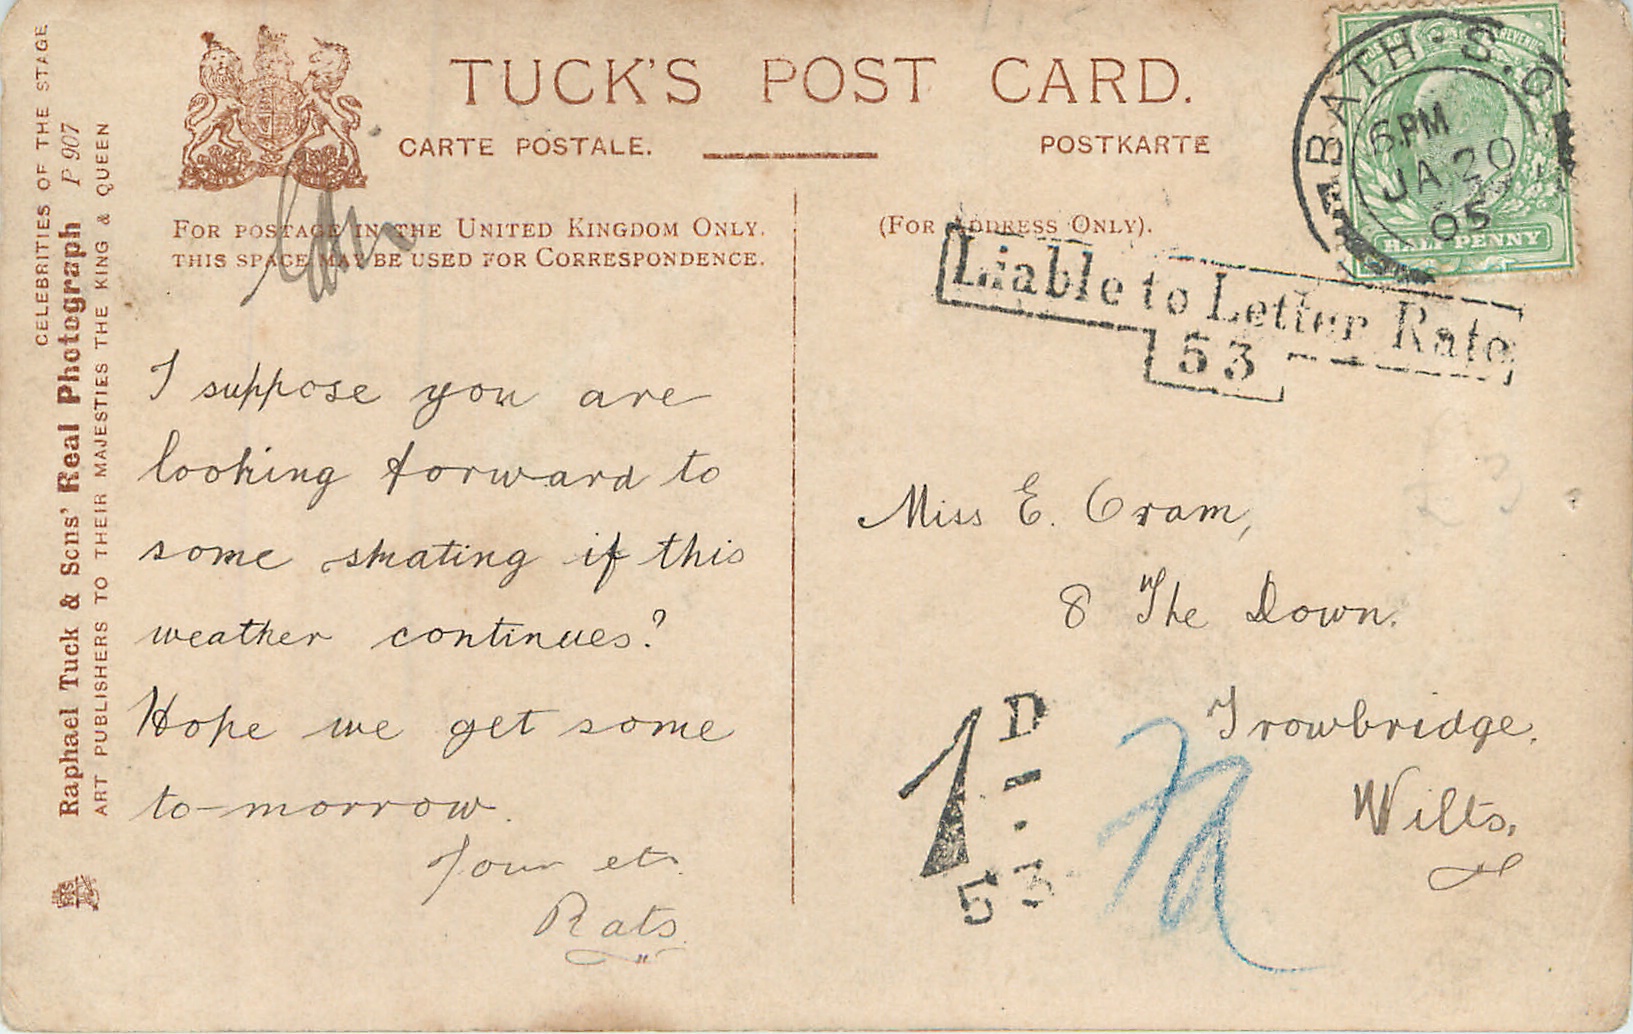 TUCK'S POST CARD.
CARTE POSTALE.
POSTKARTE
FOR POSTAGE IN THE UNITED KINGDOM ONLY.
THIS SPACE MAY BE USED FOR CORRESPONDENCE.
(FOR ADDRESS ONLY).
CELEBRITIES OF THE STAGE
Raphael Tuck & Sons' Real Photograph P 907
ART PUBLISHERS TO THEIR MAJESTIES THE KING & QUEEN
BATH · S.O
6.PM
JA 20
05
HALF PENNY
Liable to Letter Rate
53
I suppose you are
looking forward to
some skating if this
weather continues?
Hope we get some
to-morrow.
Your etc.
Rats
Miss E. Cram,
8 The Down.
Trowbridge.
Wilts.
1D
53